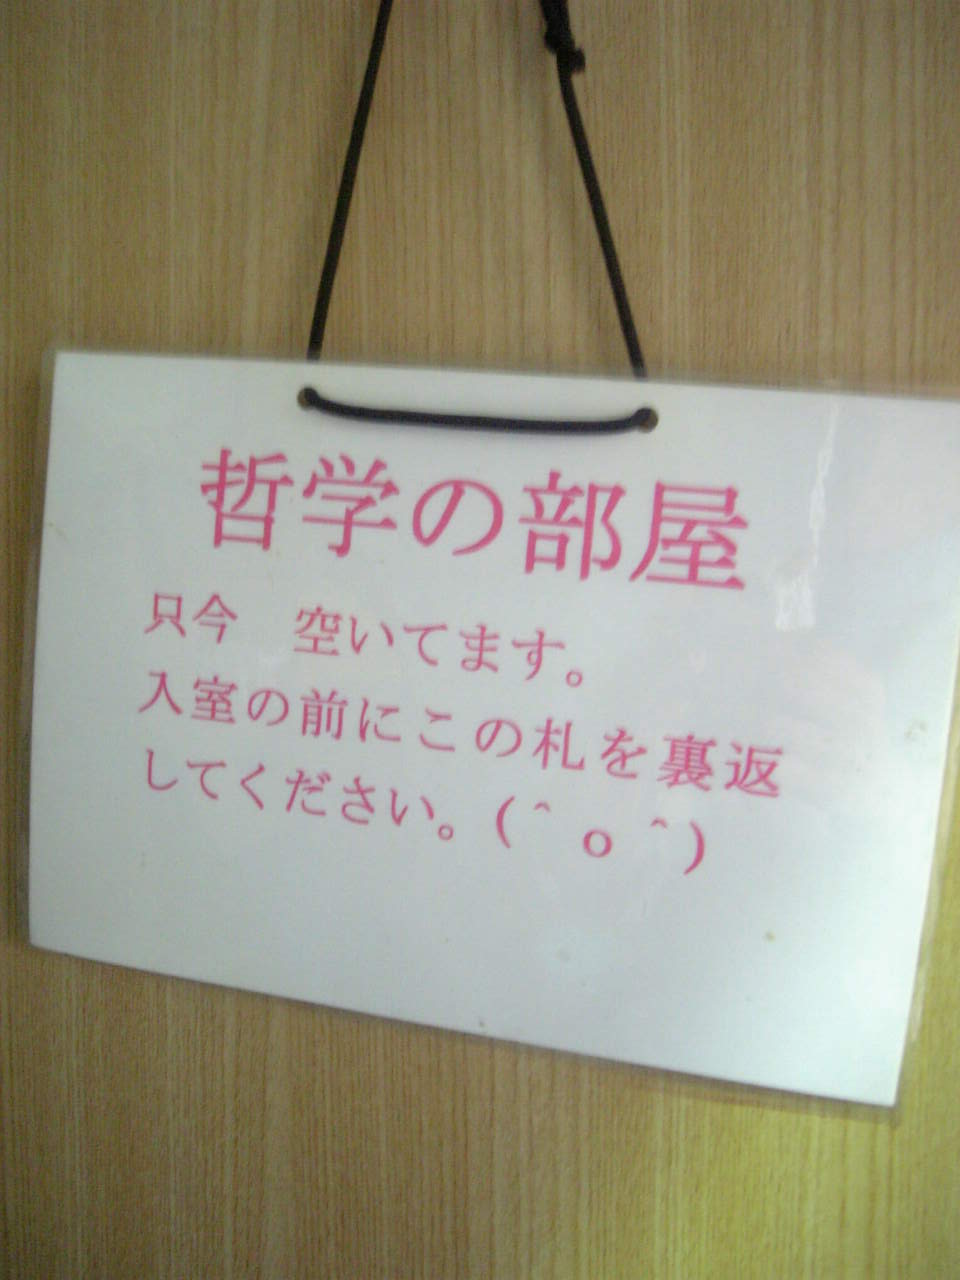 哲学の部屋
只今　空いてます。
入室の前にこの札を裏返
してください。(＾ o ＾)